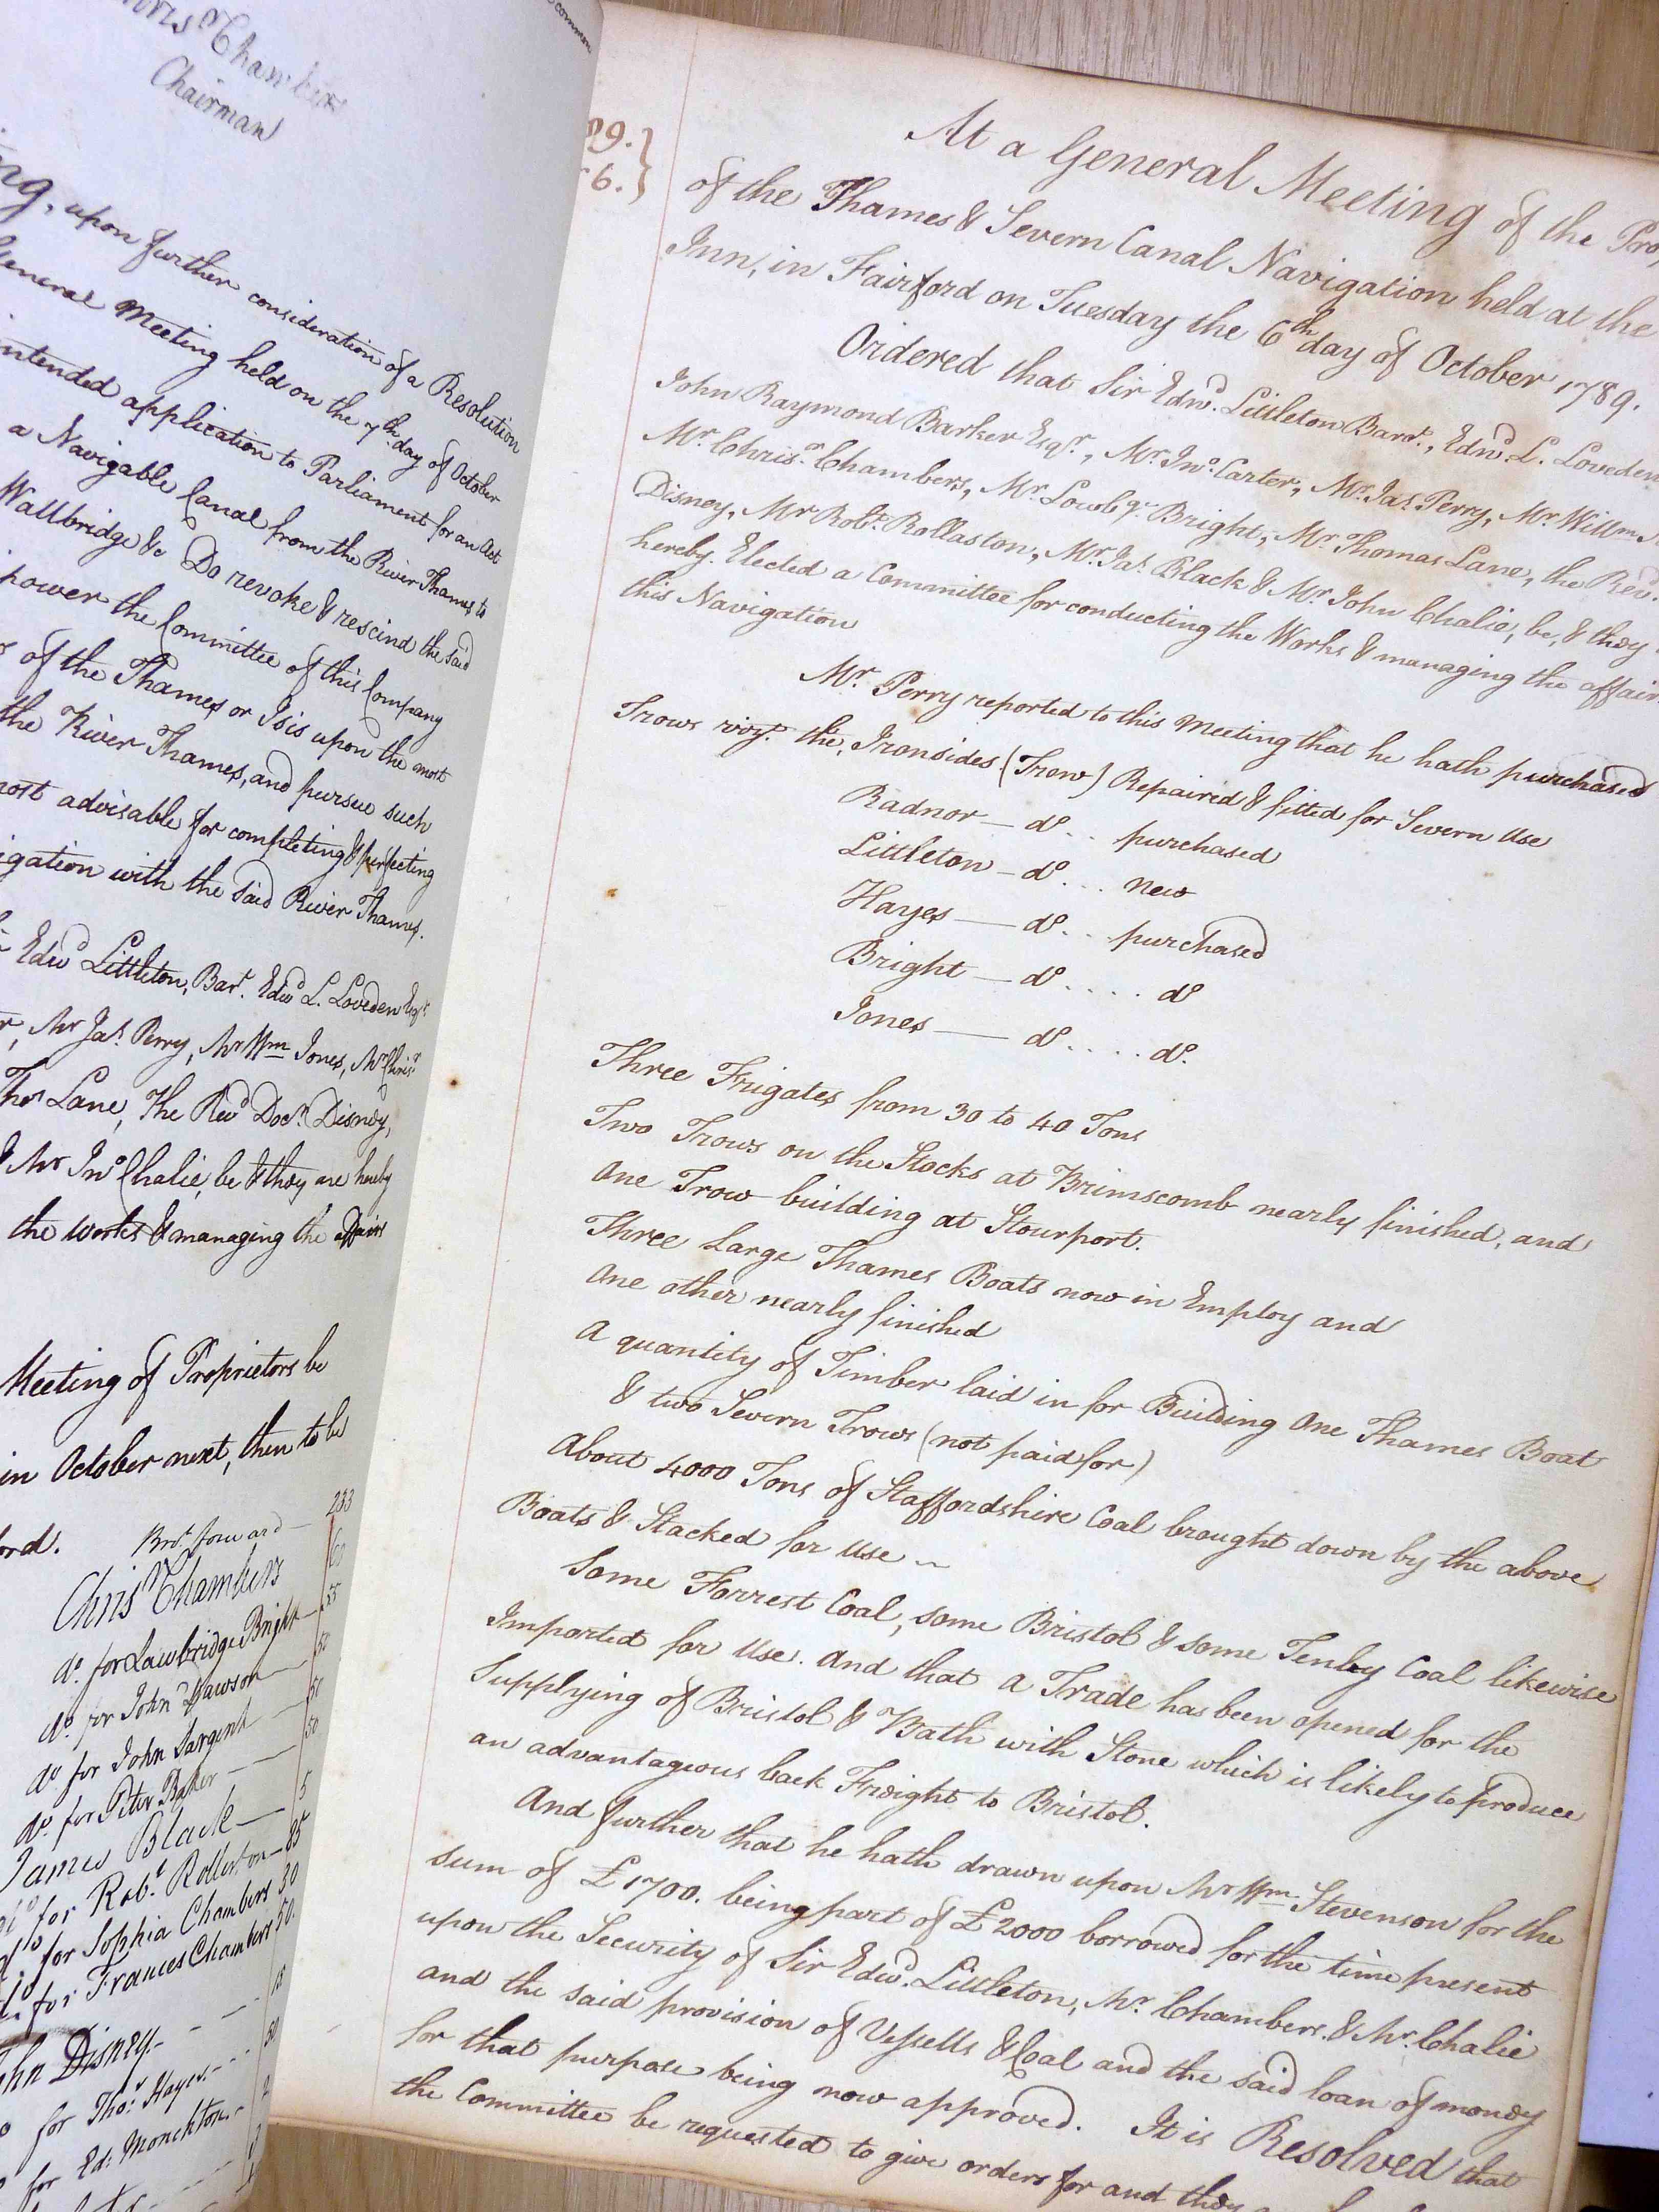 Chambers
Chairman
upon further consideration of a Resolution
General Meeting held on the 7th day of October
intended application to Parliament for an Act
a Navigable Canal from the River Thames to
Wallbridge &c Do revoke & rescind the said
power the Committee of this Company
of the Thames or Isis upon the most
the River Thames, and pursue such
most advisable for completing & perfecting
igation with the said River Thames.
Edwd Littleton, Bart. Edwd L. Loveden Esqr
Mr Jas. Perry, Mr Wm Jones, Mr Chrisr
Thos Lane, The Revd Docr. Disney,
& Mr Jno Chalie, be & they are hereby
the works & managing the affairs
Meeting of Proprietors be
in October next, then to be
ord.
Brot. forward — 233
Chrisr Chambers 60
do. for Lawbridge Bright — 55
do. for John Dawson — 50
do for John Sargent — 50
do. for Peter Baker — 50
James Black — 5
do for Robt. Rolleston — 85
do for Sophia Chambers 30
do for Frances Chambers 50.
John Disney — 15
for Thos. Hayes — 50
for Ed: Monckton — 2
89.
6.
At a General Meeting of the Pro
of the Thames & Severn Canal Navigation held at the
Inn, in Fairford on Tuesday the 6th day of October 1789.
Ordered that Sir Edwd. Littleton Barrt., Edwd. L. Loveden
John Raymond Barker Esqr., Mr. Jno. Carter, Mr. Jas. Perry, Mr Willm
Mr. Chrisr. Chambers, Mr. Lowbge. Bright, Mr. Thomas Lane, the Revd.
Disney, Mr Robt. Rollaston, Mr. Jas. Black & Mr. John Chalie, be, & they
hereby Elected a Committee for conducting the Works & managing the affair
this Navigation
Mr. Perry reported to this Meeting that he hath purchased
Trows vizt. the Ironsides (Trow) Repaired & fitted for Severn Use
Radnor — do. .. purchased
Littleton — do. ... new
Hayes — do. .. purchased
Bright — do. .... do
Jones — do. .... do.
Three Frigates from 30 to 40 Tons
Two Trows on the Stocks at Brimscomb nearly finished, and
One Trow building at Stourport.
Three Large Thames Boats now in Employ and
One other nearly finished
A quantity of Timber laid in for Building One Thames Boat
& two Severn Trows (not paid for)
About 4000 Tons of Staffordshire Coal brought down by the above
Boats & Stacked for Use ~
Some Forrest Coal, some Bristol & some Tenby Coal likewise
Imported for Use. And that a Trade has been opened for the
Supplying of Bristol & Bath with Stone which is likely to produce
an advantageous back Freight to Bristol.
And further that he hath drawn upon Mr Wm Stevenson for the
sum of £1700. being part of £2000 borrowed for the time present
upon the Security of Sir Edwd. Littleton, Mr. Chambers. & Mr. Chalie
and the said provision of Vessells & Coal and the said loan of money
for that purpose being now approved. It is Resolved that
the Committee be requested to give orders for and they